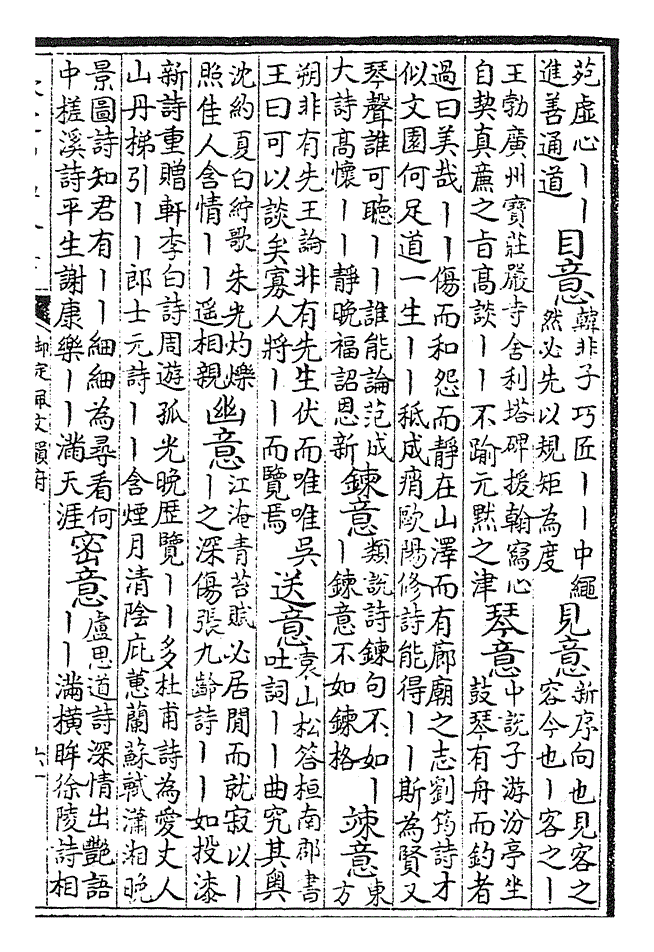 苑虛心丨丨
進善通道
目意
韓非子巧匠丨丨中繩
然必先以規矩為度
見意
新序向也見客之
容今也丨客之丨
王勃廣州寶莊嚴寺舍利塔碑援翰寫心
自契真薦之旨高談丨丨不踰元黙之津
琴意
中說子游汾亭坐
鼓琴有舟而釣者
過曰美哉丨丨傷而和怨而靜在山澤而有廊廟之志劉筠詩才
似文園何足道一生丨丨秪成痟歐陽修詩能得丨丨斯為賢又
琴聲誰可聽丨丨誰能論范成
大詩高懷丨丨靜晚福詔恩新
鍊意
類說詩鍊句不如丨
丨鍊意不如鍊格
竦意
東
方
朔非有先王論非有先生伏而唯唯吳
王曰可以談矣寡人將丨丨而覽焉
送意
袁山松答桓南郡書
吐詞丨丨曲究其奧
沈約夏白紵歌朱光灼爍
照佳人含情丨丨遥相親
幽意
江淹青苔賦必居閒而就寂以丨
丨之深傷張九齡詩丨丨如投漆
新詩重贈軒李白詩周遊孤光晚歴覽丨丨多杜甫詩為愛丈人
山丹梯引丨丨郎士元詩丨丨含煙月清陰庇蕙蘭蘇軾瀟湘晚
景圖詩知君有丨丨細細為尋看何
中槎溪詩平生謝康樂丨丨滿天涯
密意
盧思道詩深情出艷語
丨丨滿橫眸徐陵詩相
御定佩文韻府